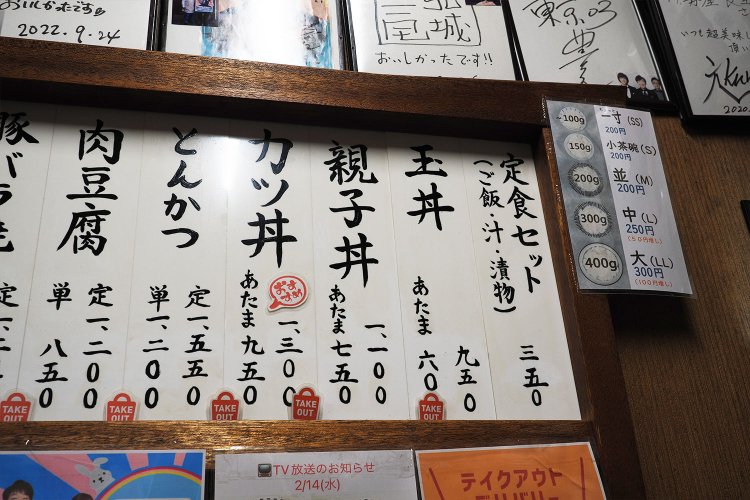 おいしかったです
2022.9.24
おいしかったです!!
東京03
いつも超美味し
定食セット
(ご飯・汁・漬物)
三五〇
玉丼
九五〇
あたま 六〇
親子丼
一、一〇〇
あたま 七五〇
カツ丼
おすすめ
一、三〇〇
あたま 九五〇
とんかつ
定 一、五五〇
単 一、二〇〇
肉豆腐
定 一、二〇〇
単 八五〇
豚バラ
TAKE OUT
TAKE OUT
TAKE OUT
TAKE OUT
TAKE OUT
~100g
一寸(SS)
200円
150g
小茶碗(S)
200円
200g
並(M)
200円
300g
中(L)
250円
(50円増し)
400g
大(LL)
300円
(100円増し)
TV放送のお知らせ
2/14(水)
テイクアウト